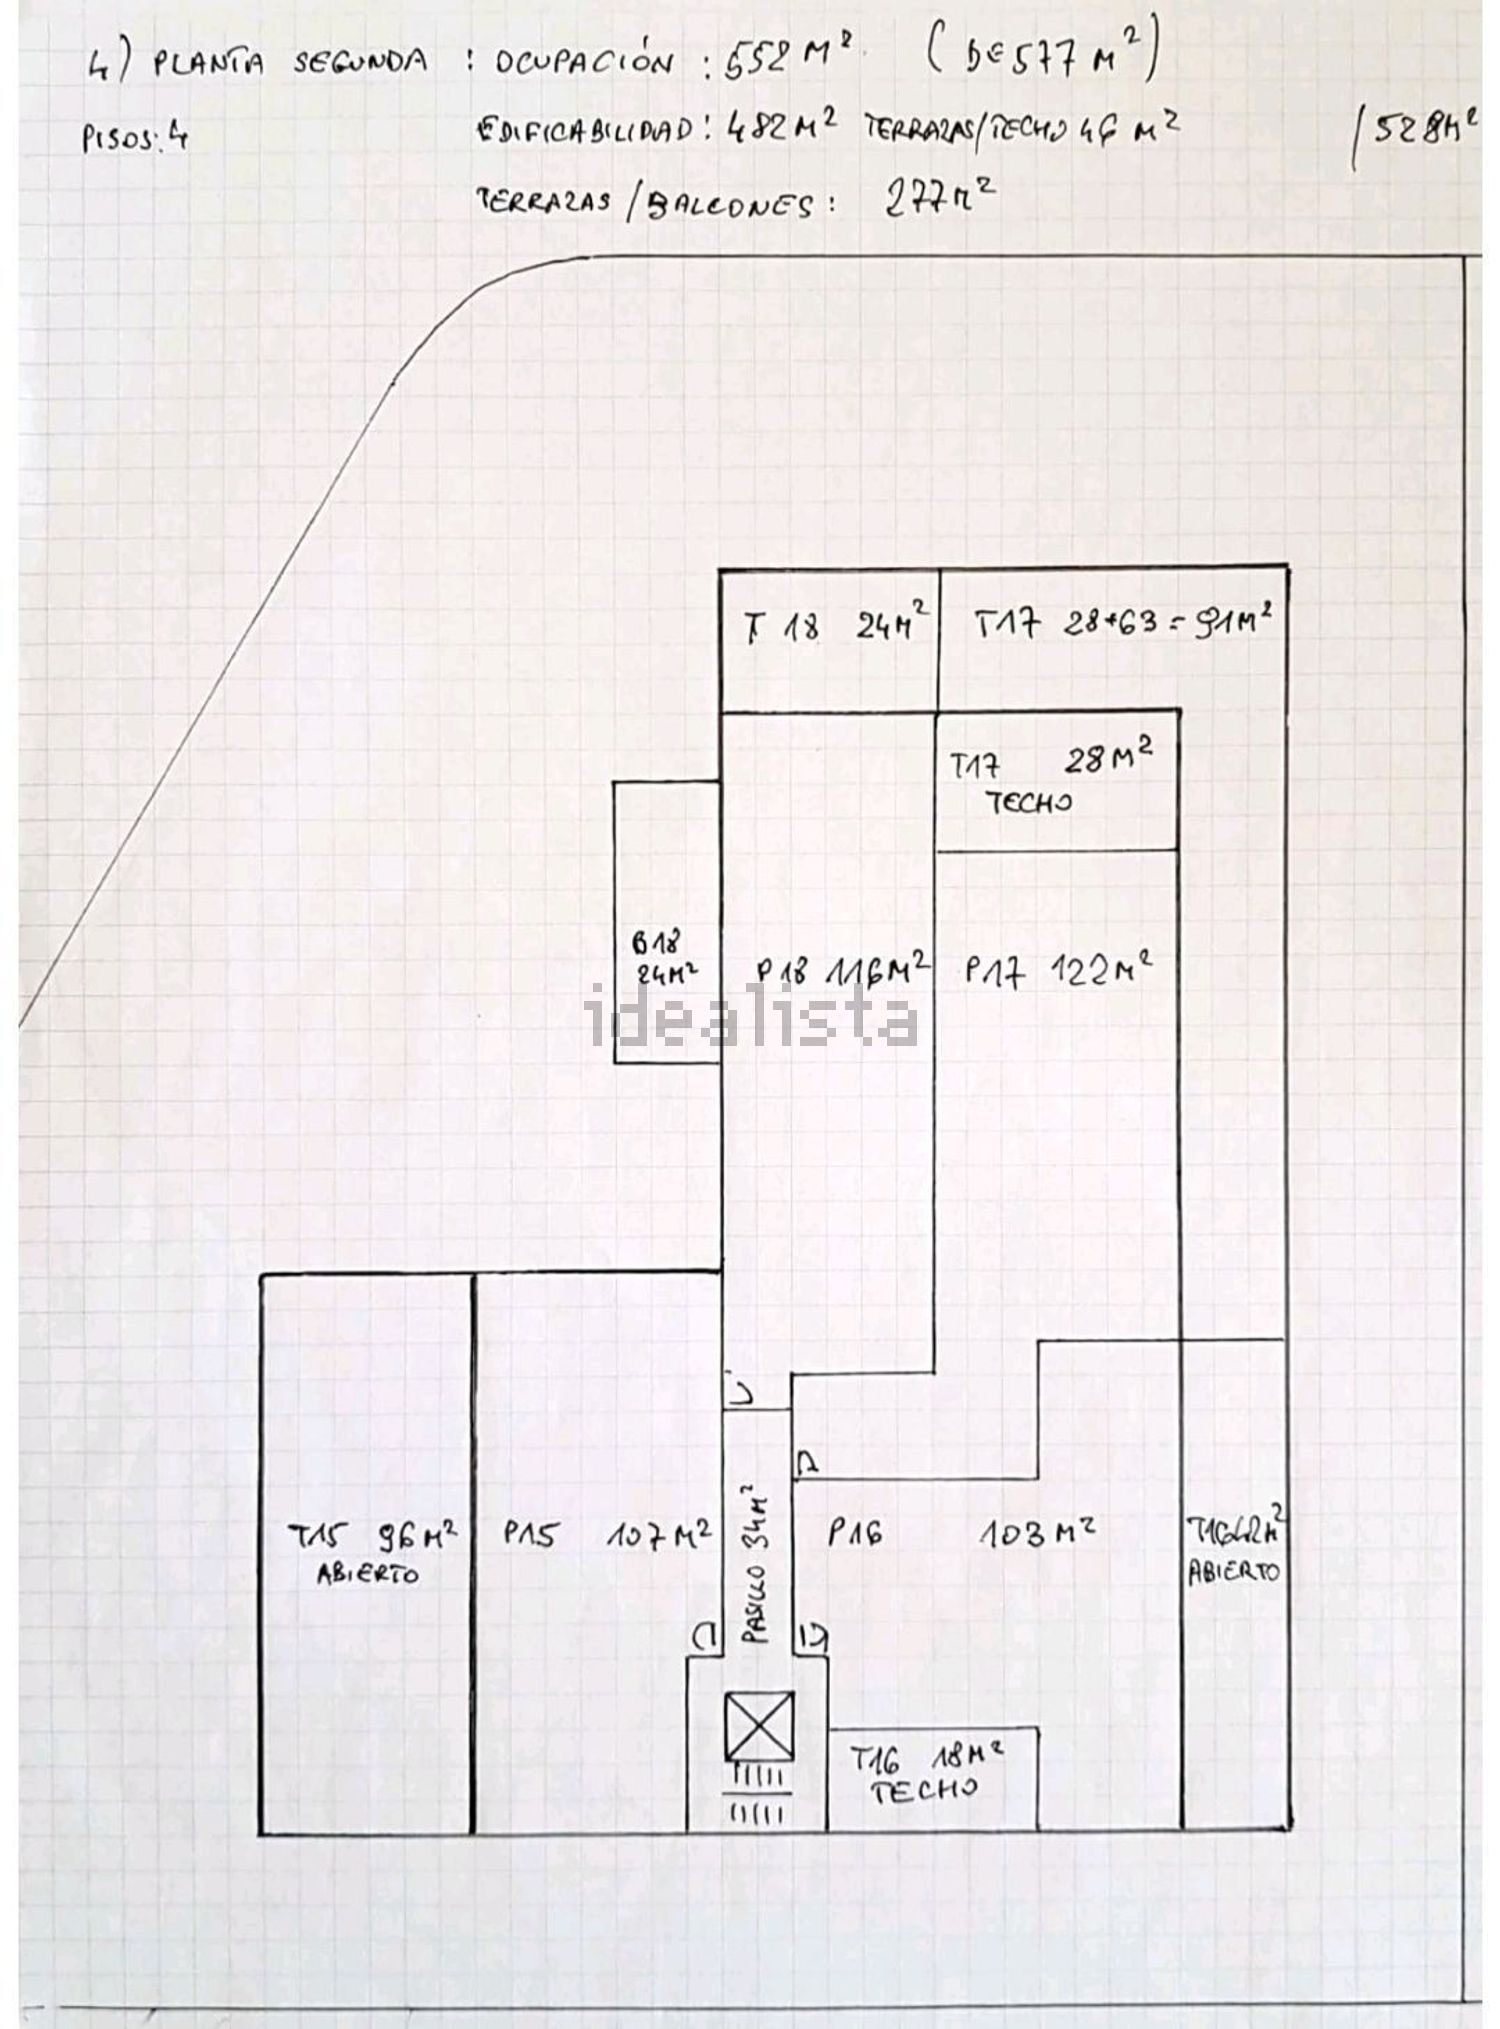 4) PLANTA SEGUNDA : OCUPACIÓN : 552 M² (DE 577 M²)
PISOS: 4 EDIFICABILIDAD: 482 M² TERRAZAS/TECHO 46 M² /528M²
TERRAZAS/BALCONES: 277M²
T 18 24M² T17 28+63 = 91M²
T17 28M²
TECHO
B18
24M²
P18 116M² P17 122M²
idealista
T15 96M² P15 107M² PASILLO 34M² P16 103M² T16 42M²
ABIERTO ABIERTO
T16 18M²
TECHO